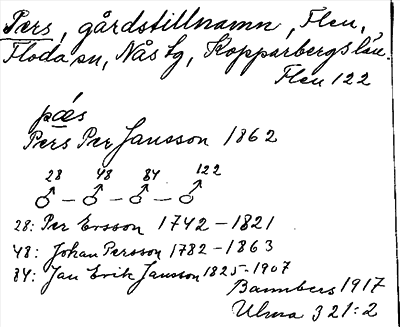 Pers, gårdstillnamn, Flen,
Floda sn, Nås tg, Kopparbergs län.
Flen 122
pǽs
Pers Per Jansson 1862
28 48 84 122
♂ – ♂ – ♂ – ♂
28: Per Ersson 1742 – 1821
48: Johan Persson 1782 – 1863
84: Jan Erik Jansson 1825 – 1907
Bannbers 1917
Ulma 321:2